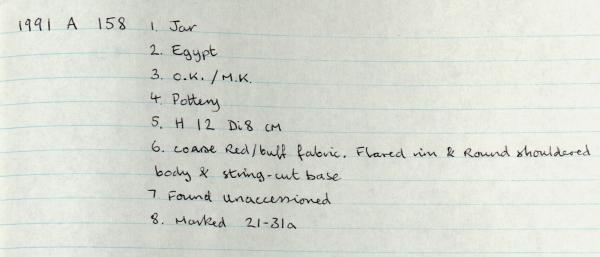 1991 A 158 1. Jar
2. Egypt
3. O.K. / M.K.
4. Pottery
5. H 12 Di8 CM
6. coarse Red/buff fabric. Flared rim & Round shouldered
body & string-cut base
7 Found Unaccessioned
8. Marked 21-31a